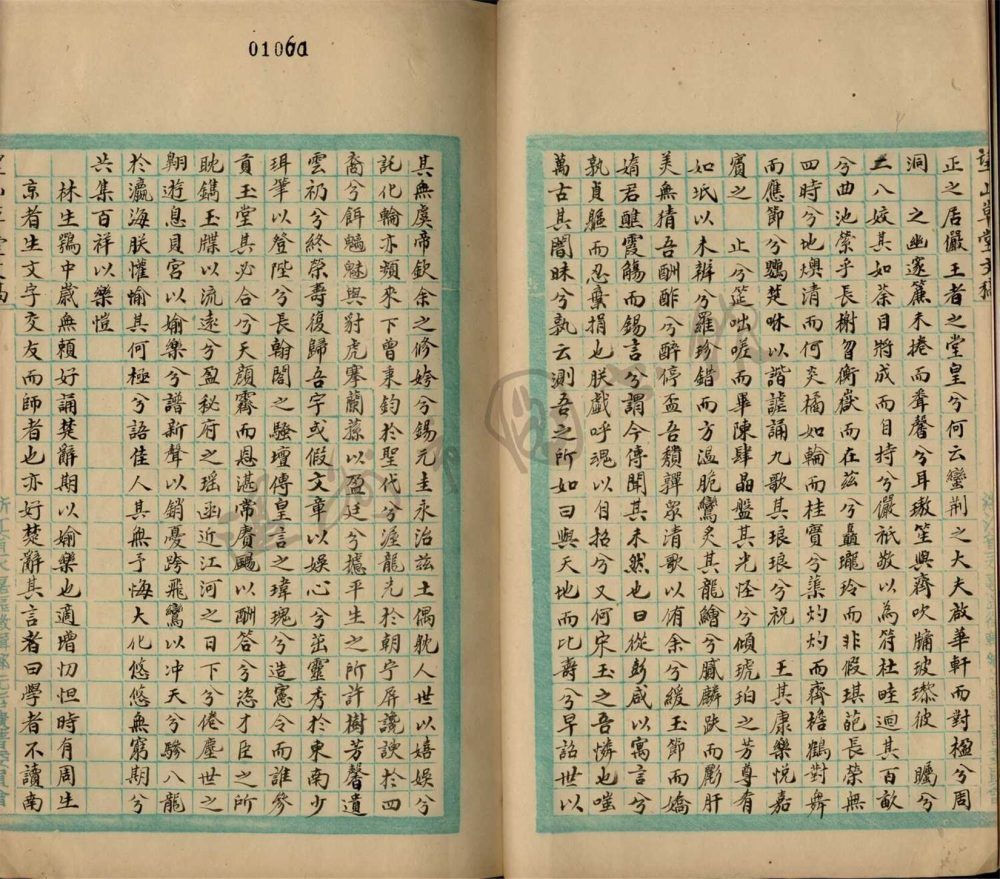 望山草堂文稿
正之居儼王者之堂皇兮何云蠻荆之大夫啟華軒而對楹兮周
洞 之幽邃簾未捲而聲聲兮耳璈笙與齊吹牖玻瓈彼 矚兮
二八姣其如荼目將成而目持兮儼祇敬以為符杜畦迴其百畝
兮曲池縈乎長榭習衡嶽而在茲兮聶瓏玲而非假琪葩長榮無
四時兮地燠清而何炎橘如輪而桂寶兮蕖灼灼而齊檐鶴對舞
而應節兮鸚楚咻以諧謔誦九歌其琅琅兮祝 王其康樂悅嘉
賓之 止兮筵咄嗟而畢陳肆晶盤其光怪兮傾琥珀之芳尊有
如坻以未辨兮羅珍錯而方溫脃鸞炙其龍繪兮膩麟趺而彫肝
美無猜吾酬酢兮醉停盃吾穨顰衆清歌以侑余兮緩玉節而嬌
婧君醮霞觴而錫言兮謂今傳聞其未然也曰從彭咸以寓言兮
孰貞軀而忍棄捐也朕戲呼魂以自招兮又何宋玉之吾憐也嗤
萬古其闇昧兮孰云測吾之所如曰與天地而比壽兮早詔世以
其無虞帝欽余之修姱兮錫元圭永治茲土偶躭人世以嬉娛兮
託化輪亦頻來下曾秉鈞於聖代兮渥龍光於朝宁屏讒諛於四
裔兮餌魑魅與豺虎搴蘭蓀以盈廷兮攄平生之所許樹芳馨遺
雲礽兮終榮壽復歸吾宇或假文章以娛心兮茁靈秀於東南少
珥筆以簦陛兮長翰閣之騷壇傳皇言之瑋瑰兮造憲令而誰參
貢玉堂其必合兮天顏霽而恩湛常賡颺以酬答兮恣才臣之所
眈鐫玉牒以流遠兮盈秘府之瑶函近江河之日下兮倦塵世之
翱遊息貝宮以媮樂兮譜新聲以銷憂跨飛鸞以冲天兮驂八龍
於瀛海朕懽愉其何極兮語佳人其無予悔大化悠悠無窮期兮
共集百祥以樂愷
林生鶚中歲無賴好誦楚辭期以媮樂也適增忉怛時有周生
京者生文字交友而師者也亦好楚辭其言者曰學者不讀南